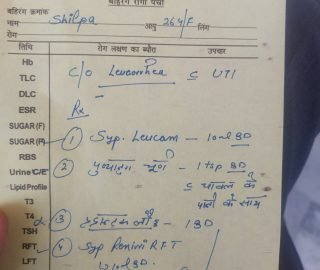 बहिरंग रोगी पर्चा
बहिरंग क्रमांक
नाम Shilpa आयु 26y/F लिंग
रोग
तिथि रोग लक्षण का ब्यौरा उपचार
Hb
C/o Leucorrhea c UTI
TLC
DLC
Rx
ESR
SUGAR(F)
① Syp. Leucam — 10ml BD
SUGAR(R)
RBS
② चूर्ण — 1 tsp BD
Urine C/E
c चावल के
Lipid Profile
पानी के साथ
T3
T4
③ — 1 BD
TSH
RFT
④ Syp R.F.T
LFT
BD.